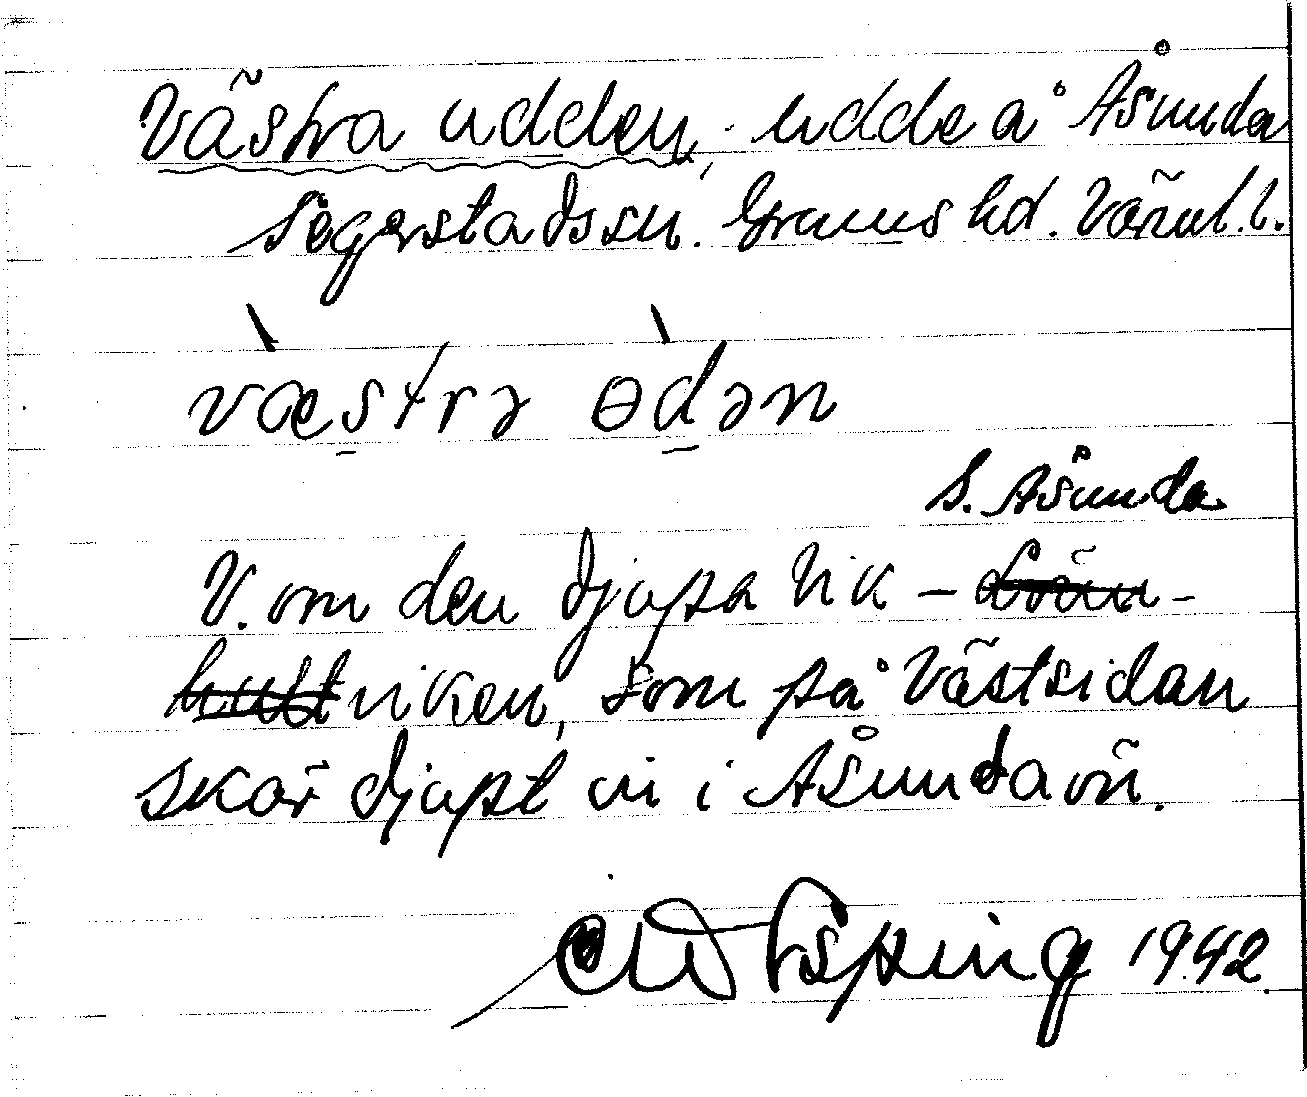 Västra udden, udde å Åsunda
Segerstads sn. Grums hd. Värml. l.
væstrə ɵdən
S. Åsunda
V. om den djupa vik –
viken, som på västsidan
skär djupt in i Åsundaön.
1942